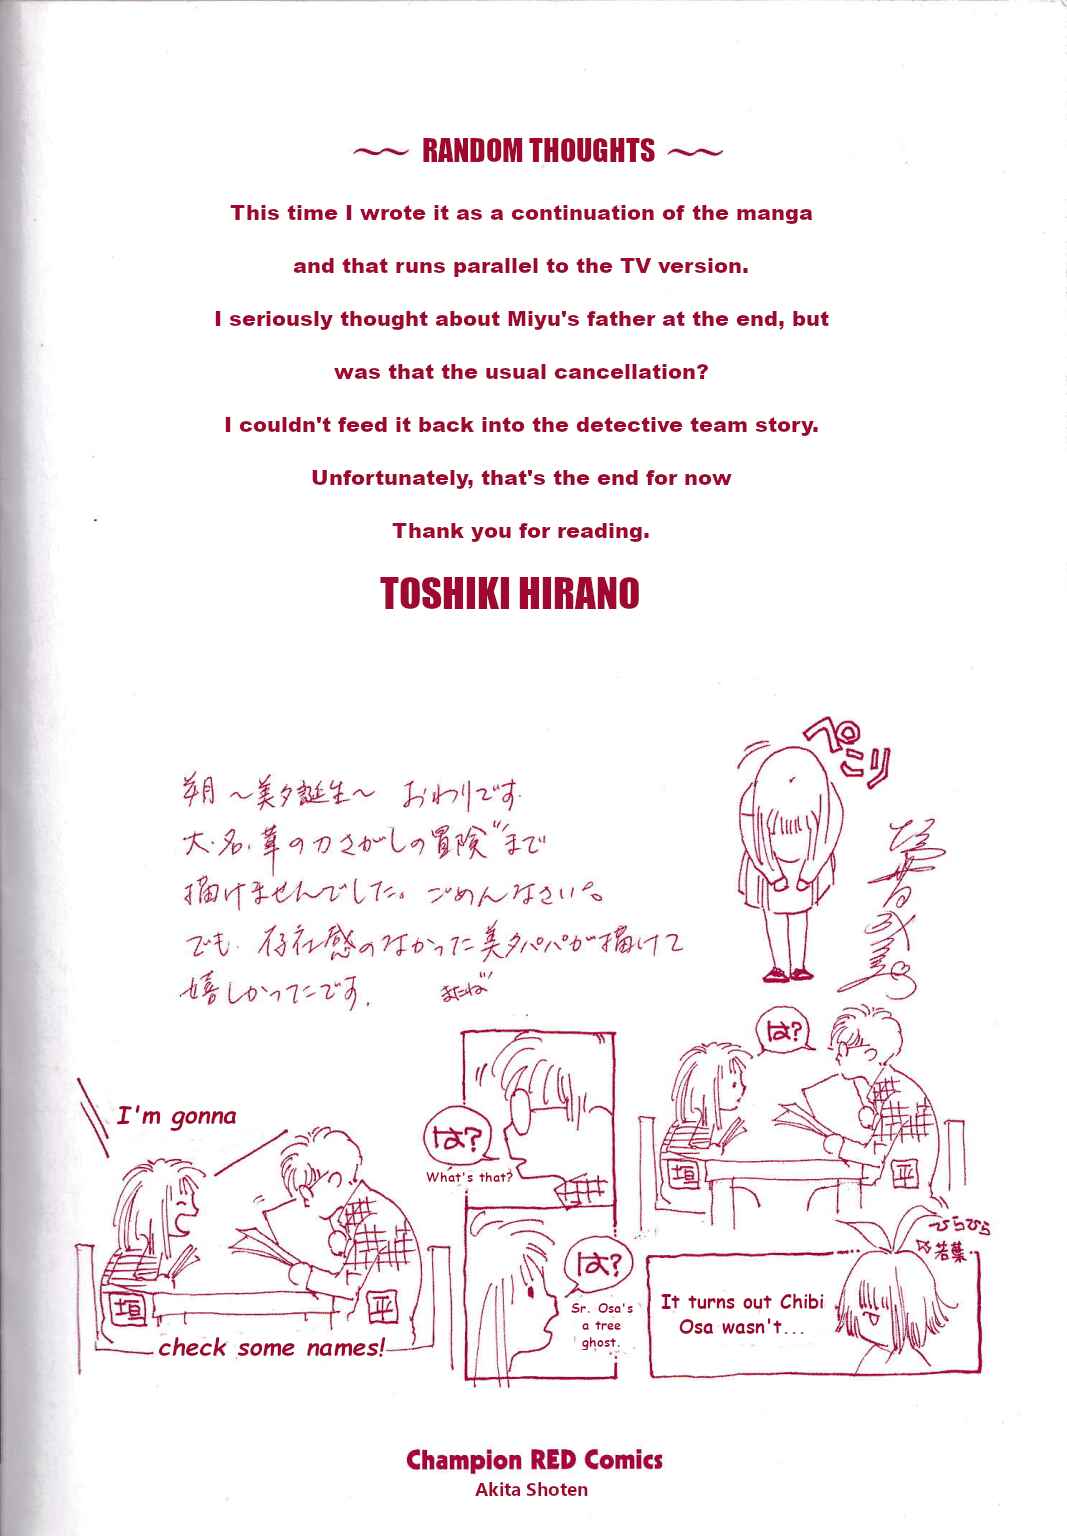 RANDOM THOUGHTS
This time I wrote it as a continuation of the manga
and that runs parallel to the TV version.
I seriously thought about Miyu's father at the end, but
was that the usual cancellation?
I couldn't feed it back into the detective team story.
Unfortunately, that's the end for now
Thank you for reading.
TOSHIKI HIRANO
ペこり
朔 〜美夕誕生〜 おわりです。
大・名・葦の刀さがしの冒険"まで
描けませんでした。ごめんなさい。
でも、存在感のなかった美夕パパが描けて
嬉しかったです。 またね"
I'm gonna
check some names!
垣
平
は?
What's that?
は?
Sr. Osa's
a tree
ghost.
は?
垣
平
It turns out Chibi
Osa wasn't...
ひらひら
若葉
Champion RED Comics
Akita Shoten